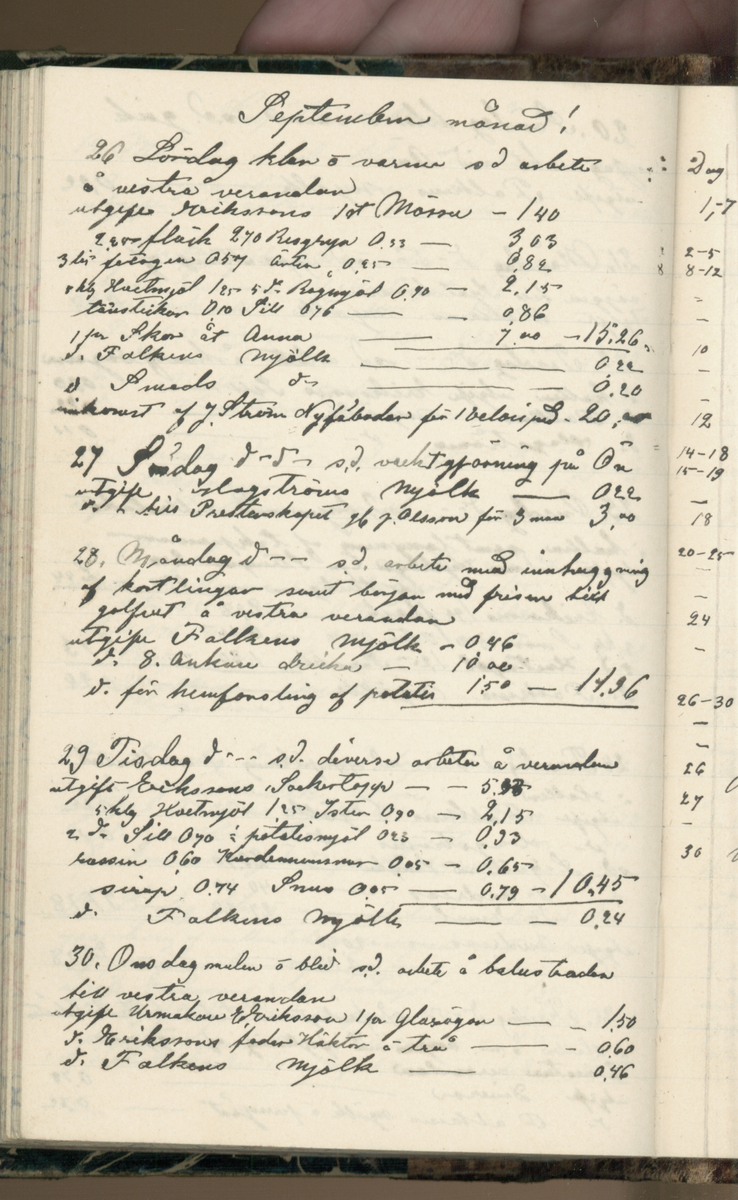 September månad!
26 Lördag klar o varm s d arbete
å vestra verandan
utgift Erikssons 1 st Mössa - 1 40
fläsk 2 70 Risgryn 0.33 — 3 03
0 57 ärter 0,25 — 0,82
5 kg Hvetmjöl 1 25 5 d: Ragmjöl 0,90 - 2,15
tändstickor 0,10 Sill 0 76 — 0,86
1 par Skor åt Anna — 7,00 - 15,26
d. Falkens mjölk — 0 22
d Smeds d:o — 0,20
inkomst af J. Ström Nyfäboda för 1 Velociped - 20,
27 Söndag d - d - s.d. vacktgjörning på Ön
utgift Hagströms mjölk — 0 22
d. till Prestenskapet gb J. Olsson för 3 man 3,00
28. Måndag d - - s.d. arbete med innhuggning
af kortlingar samt början med frisen till
golfvet å vestra verandan
utgift Falkens mjölk - 0,46
d. 8. Ankare dricka — 10 00
d. för hemforsling af potatis 1 50 — 11,96
29 Tisdag d - - s.d. diverse arbeten å verandan
utgift Erikssons Sockertopp — 5,93
5 kg Hvetmjöl 1,25 Ister 0,90 - 2,15
2 d: Sill 0 70 potatismjöl 0 23 - 0,93
russin 0,60 Kardemummor 0,05 - 0,65
sirap 0.74 Snus 0,05 — 0,79 - 10,45
d. Falkens mjölk — 0,24
30. Onsdag mulen o blid s.d. arbete å balustraden
till vestra verandan
utgift Urmakare E Eriksson 1 par Glasögon — 1,50
d. Erikssons foder Häktor o trå — 0,60
d. Falkens mjölk — 0,46
Dag
1,-7
2-5
8-12
10
12
14-18
15-19
18
20-25
24
26-30
26
27
30